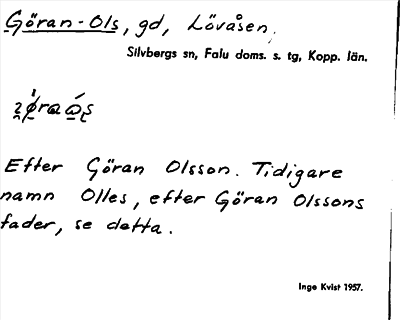 Göran-Ols, gd, Lövåsen,
Silvbergs sn, Falu doms. s. tg, Kopp. län.
Efter Göran Olsson. Tidigare
namn Olles, efter Göran Olssons
fader, se detta.
Inge Kvist 1957.